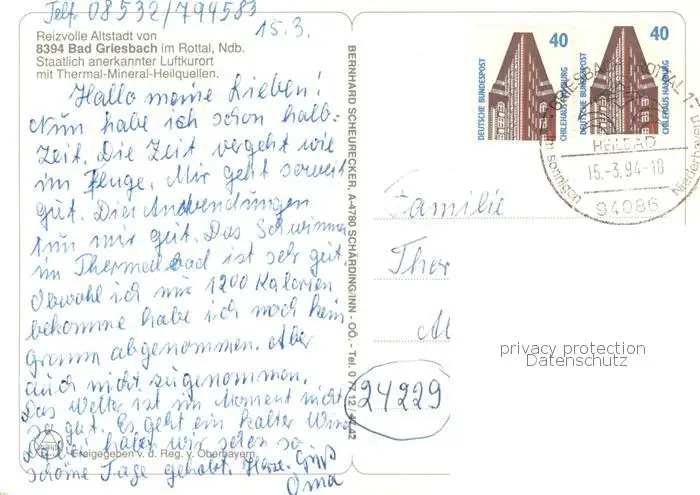 Telf. 08532/794583
15.3.
Reizvolle Altstadt von
8394 Bad Griesbach im Rottal, Ndb.
Staatlich anerkannter Luftkurort
mit Thermal-Mineral-Heilquellen.
Hallo meine Lieben!
Nun habe ich schon halb-
zeit. Die Zeit vergeht wie
im Fluge. Mir geht soweit
gut. Die Anwendungen
tun mir gut. Das Schwimmen
im Thermalbad ist sehr gut
Obwohl ich nur 1200 Kalorien
bekomme habe ich noch kein
gramm abgenommen. Aber
auch nicht zugenommen.
Das Wetter ist im Moment nicht
so gut. Es geht ein kalter Wind
haben wir schon so
schöne Tage gehabt. Herzl. Gruß
Oma
Freigegeben v. d. Reg. v. Oberbayern
BERNHARD SCHEURECKER, A-4780 SCHÄRDING/INN - OÖ. - Tel. 0 77 12 / 42
DEUTSCHE BUNDESPOST
40
CHILEHAUS HAMBURG
DEUTSCHE BUNDESPOST
40
CHILEHAUS HAMBURG
GRIESBACH I. ROTTAL 1
HEILBAD
15.-3.94-18
94086
im sonnigen Niederbayern
Familie
Thor
24229
privacy protection
Datenschutz